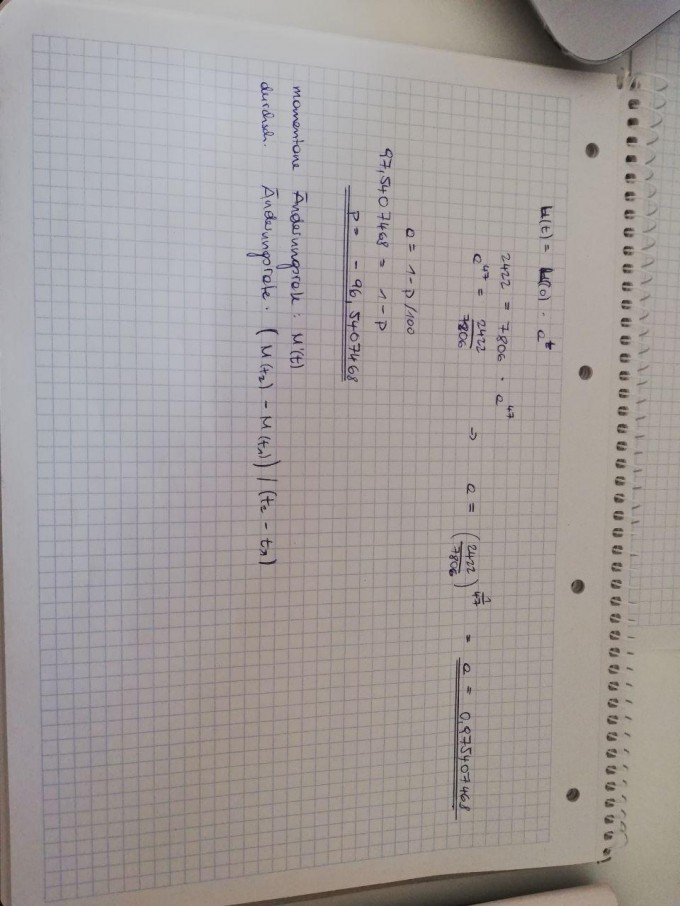 H(t) = H(0) · a^t
2422 = 7806 · a^47
a^47 = 2422/7806 ⇒ a = (2422/7806)^(1/47) = a = 0,975407468
a = 1 - p/100
97,5407468 = 1 - p
p = - 96,5407468
momentane Änderungsrate: M'(t)
durchsch. Änderungsrate: (M(t₂) - M(t₁)) / (t₂ - t₁)